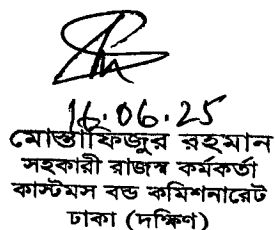 16.06.25
মোস্তাফিজুর রহমান
সহকারী রাজস্ব কর্মকর্তা
কাস্টমস বন্ড কমিশনারেট
ঢাকা (দক্ষিণ)